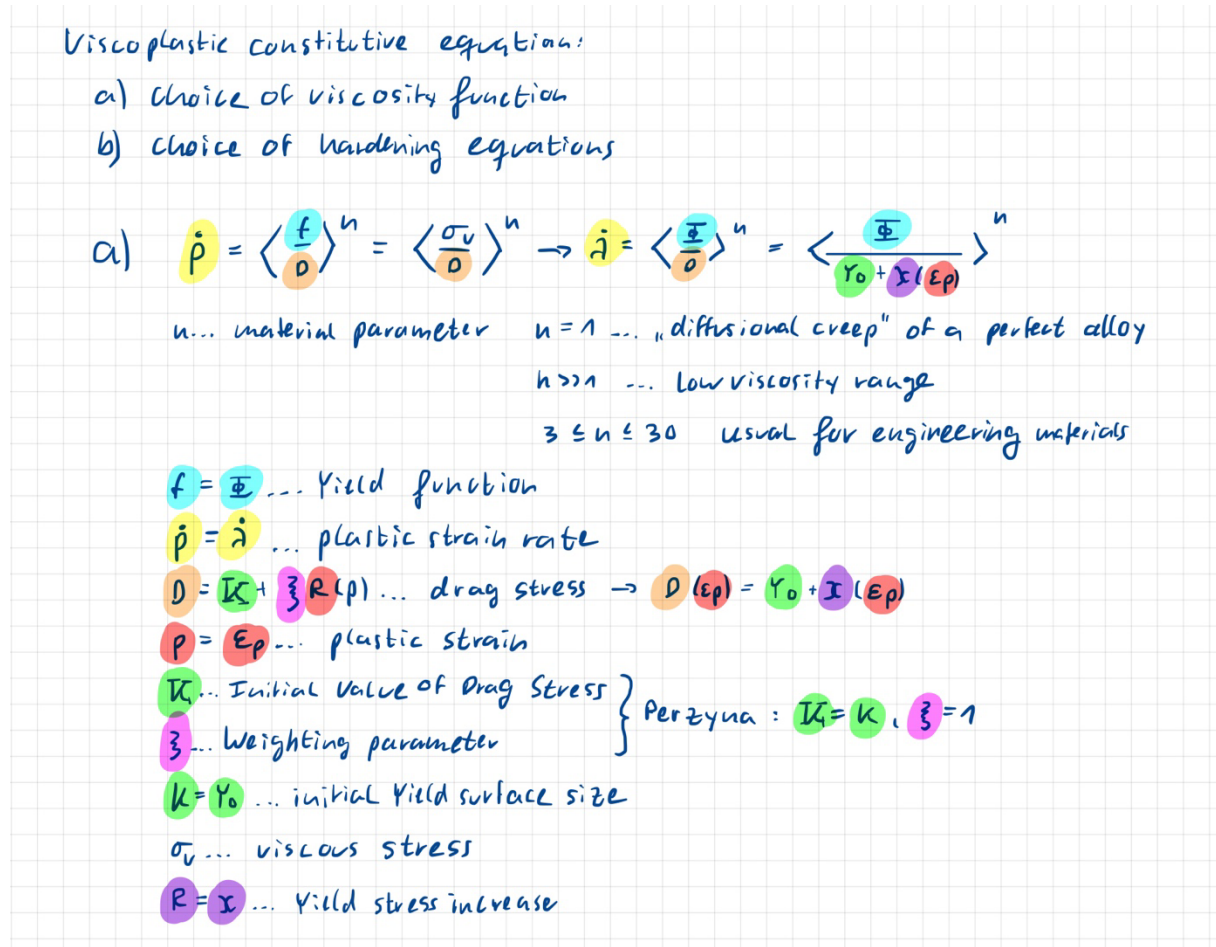 Viscoplastic constitutive equation:
a) choice of viscosity function
b) choice of hardening equations
a) ṗ = ⟨f/D⟩ⁿ = ⟨σᵥ/D⟩ⁿ → λ̇ = ⟨Φ/D⟩ⁿ = ⟨Φ/(Y₀ + χ(εp))⟩ⁿ
n... material parameter n = 1 ... „diffusional creep" of a perfect alloy
n >> 1 ... Low viscosity range
3 ≤ n ≤ 30 usual for engineering materials
f = Φ .... Yield function
ṗ = λ̇ ... plastic strain rate
D = K + ξ R(p) ... drag stress → D(εp) = Y₀ + χ(εp)
p = εp ... plastic strain
K... Initial Value of Drag Stress } Perzyna : K = k, ξ = 1
ξ... Weighting parameter
k = Y₀ ... initial Yield surface size
σᵥ ... viscous stress
R = χ ... Yield stress increase